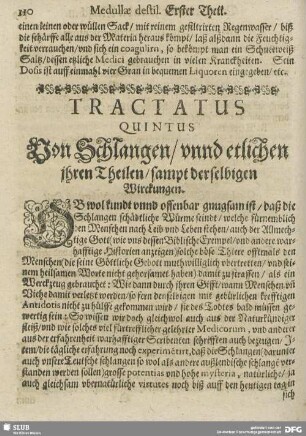 110 Medullæ destil. Erster Theil.
einen leinen oder wüllen Sack/ mit reinem gefiltrirten Regenwasser/ biß
die schärffe alle aus der Materia heraus kömpt/ laß alßdann die Feuchtig-
keit verrauchen/ vnd sich ein coagulirn, so bekömpt man ein Schneeweiß
Saltz/ dessen etzliche Medici gebrauchen in vielen Kranckheiten. Sein
Dosis ist auff einmahl vier Gran in bequemen Liquoren eingegeben/ etc.
TRACTATUS
QUINTUS
Von Schlangen/ vnnd etlichen
ihren Theilen/ sampt derselbigen
Wirckungen.
OB wol kundt vnnd offenbar gnugsam ist/ daß die
Schlangen schädtliche Würme seindt/ welche fürnemblich
den Menschen nach Leib vnd Leben stehen/ auch der Allmech-
tige Gott/ wie vns dessen Biblische Exempel/ vnd andere war-
hafftige Historien anzeigen/ solche böse Thierer offtmals den
Menschen/ die seine Göttliche Gebott muthwilliglich vbertretten/ vnd sei-
nem heilsamen Worte nicht gehorsamet haben) damit zu straffen/ als ein
Werckzeug gebrauchet: Wie dann durch ihren Gifft/ wann Menschen vnd
Viehe damit verletzt werden/ so fern derselbigen mit gebürlichen krefftigen
Antidotis nicht zu hülffe gekommen wird/ sie des Todtes bald müssen ge-
wertig sein; So wissen wir doch gleichwol auch das der Naturkündiger
fleiß/ vnd wie solches viel fürtrefflicher gelehrter Medicorum, vnd anderer
aus der erfahrenheit warhafftiger Scribenten schrifften auch bezeugen/ I-
tem/ die tägliche erfahrung noch experimentirt, daß die Schlangen/ darunter
auch vnsere Teutsche schlangen so wol als andere außlendische schlangen ver-
standen werden sollen) grosse potentias vnd hohe mysteria natürliche/ ja
auch gleichsam vbernatürliche virtutes noch biß auff den heutigen tag in
sich
SLUB